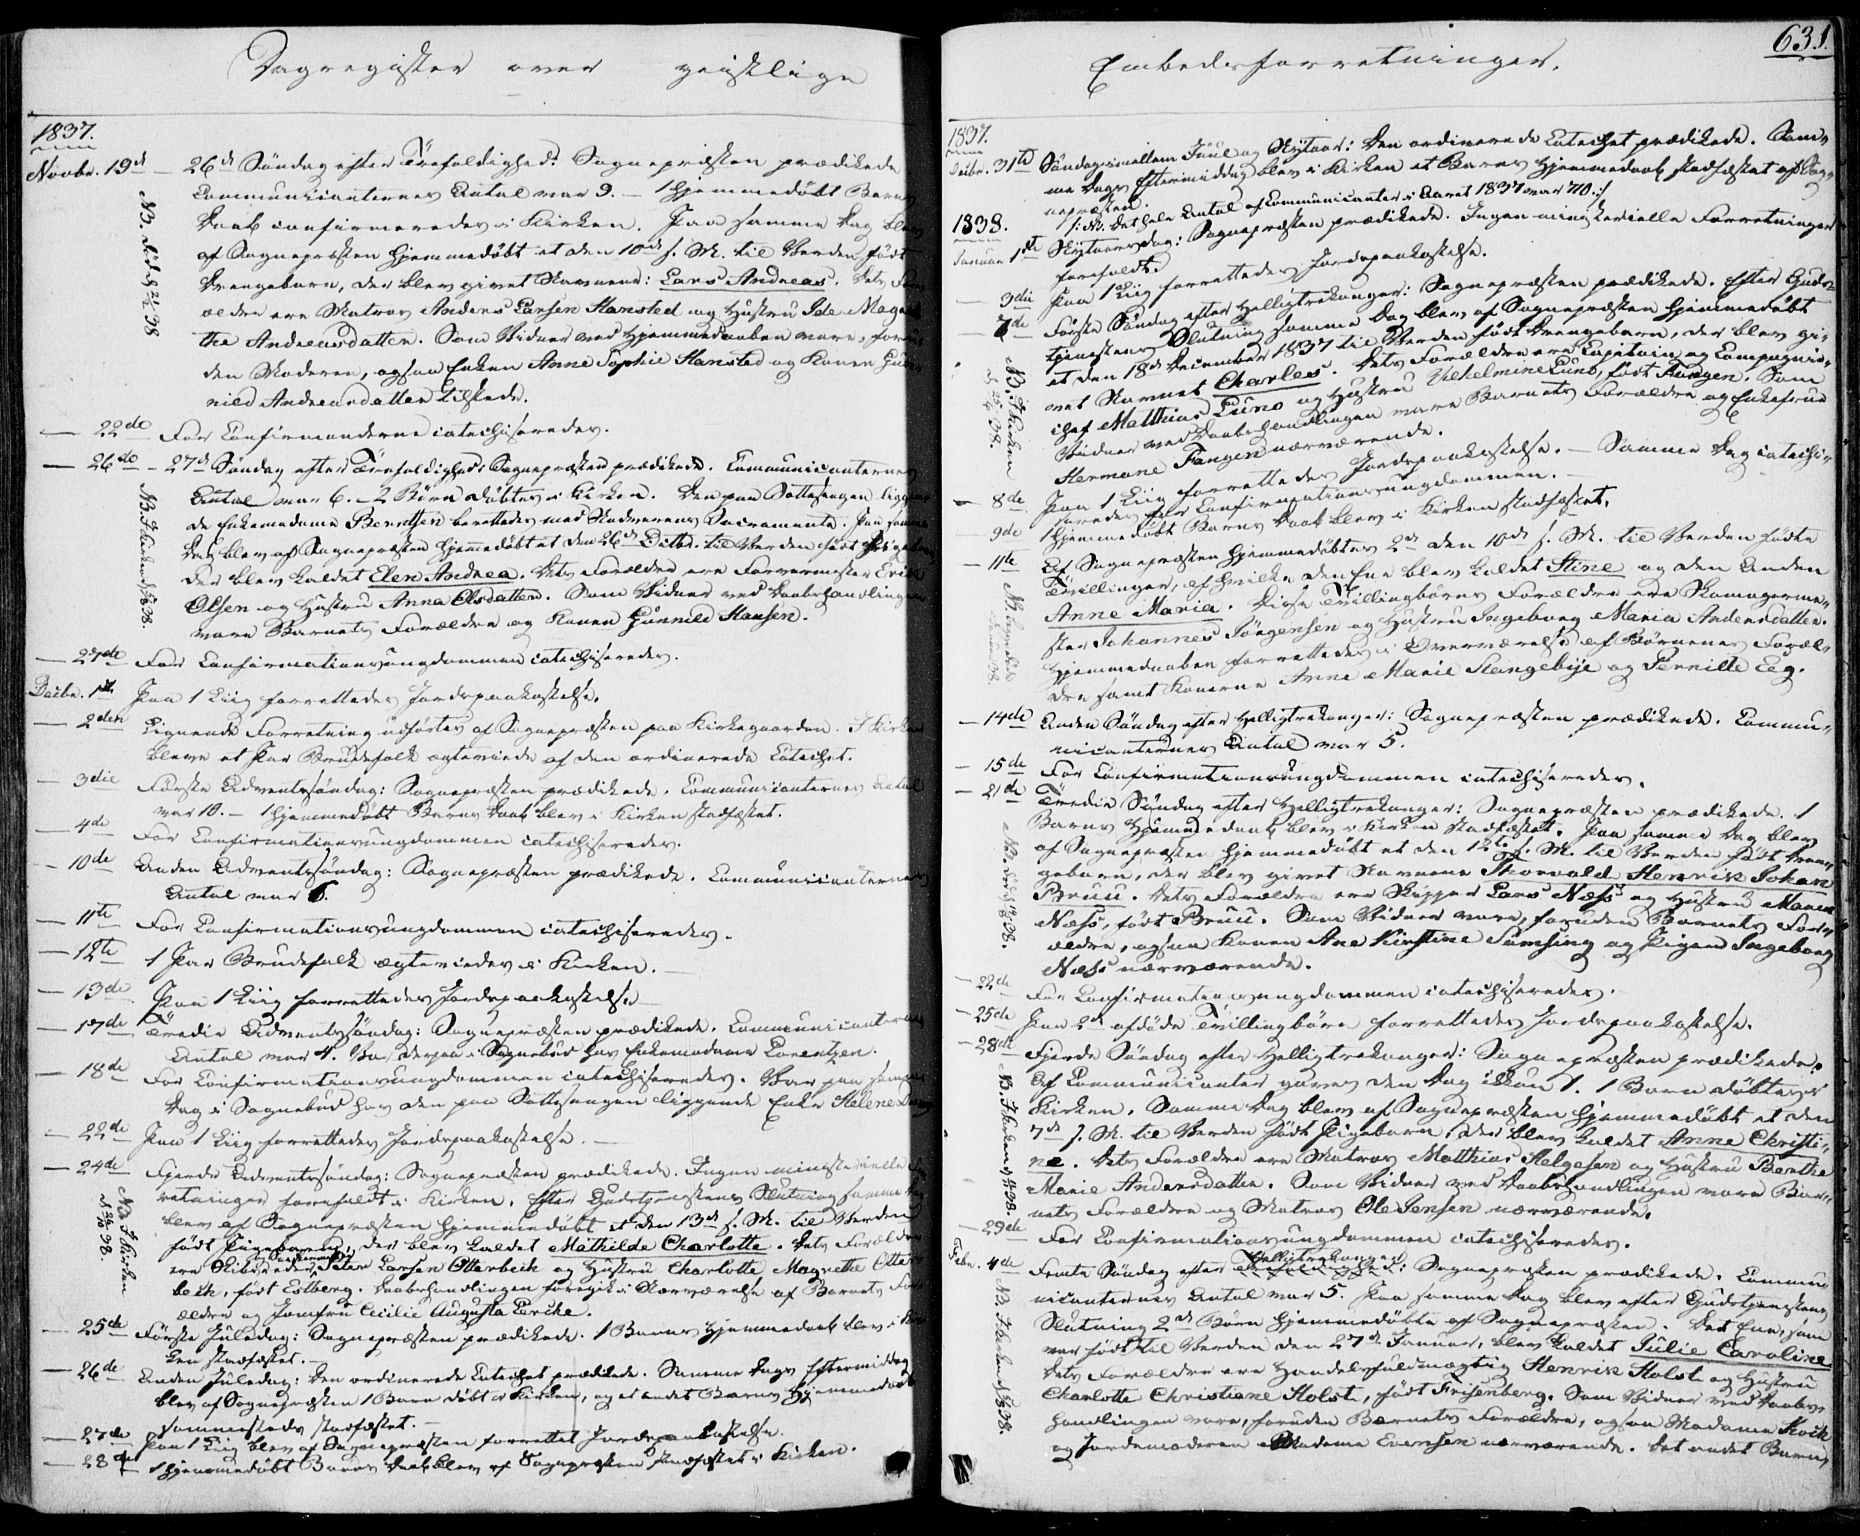 Dagregister over geistlige
1837.
Novbr. 19d — 26d Söndag efter Trefoldighed: Sognepræsten prædikede
Communicanternes Antal var 9. — 1 Hjemmedöbt Barns
Daab confirmeredes i Kirken. Paa samme Dag blev
af Sognepræsten hjemmedöbt et den 10d s. M. til Verden födt
Drengebarn, der blev givet Navnene: Lars Andreas. Dets For-
ældre ere Matros Anders Larsen Hansted og Hustru Ide Magre-
the Andreasdatter. Som Vidner ved Hjemmedaaben vare, foru-
den Moderen, ogsaa Enken Anne Sophie Hansted og Konen Gun-
nild Andreasdatter tilstede.
— 22de For Confirmanderne catechiseredes.
— 26de — 27d Söndag efter Trefoldighed: Sognepræsten prædikede. Communicanternes
Antal var 6. — 2 Börn döbtes i Kirken. Den paa Sottesengen liggen-
de Enkemadame Berntsen berettedes med Nadverens Sacramente. Paa samme
Dag blev af Sognepræsten hjemmedöbt et den 26d Octbr. til Verden födt Pigebarn,
der blev kaldet Elen Andrea. Dets Forældre ere Farvermester Erik
Olsen og Hustru Anna Olsdatter. Som Vidner ved Daabshandlingen
vare Barnets Forældre og Konen Gunnild Hansen.
— 27de For Confirmationsungdommen catechiseredes.
Decbr. 1ste Paa 1 Liig forrettedes Jordspaakastelse.
— 2den Lignende Forretning udförtes af Sognepræsten paa Kirkegaarden. I Kirken
bleve et Par Brudefolk ægteviede af den ordinerede Catechet.
— 3die Förste Adventssöndag: Sognepræsten prædikede. Communicanternes Antal
var 10. — 1 hjemmedöbt Barns Daab blev i Kirken stadfæstet.
— 4de For Confirmationsungdommen catechiseredes.
— 10de Anden Adventssöndag: Sognepræsten prædikede. Communicanternes
Antal var 6.
— 11te For Confirmationsungdommen catechiseredes.
— 12te 1 Par Brudefolk ægteviedes i Kirken.
— 13de Paa 1 Liig forrettedes Jordspaakastelse.
— 17de Tredie Adventssöndag: Sognepræsten prædikede. Communicanternes
Antal var 4. Var derpaa i Sognebud hos Enkemadame Lorentzen.
— 18de For Confirmationsungdommen catechiseredes. Var paa samme
Dag i Sognebud hos den paa Sottesengen liggende Enke Helene
— 22de Paa 1 Liig forrettedes Jordspaakastelse. —
— 24de Fjerde Adventssöndag: Sognepræsten prædikede. Ingen ministerielle For-
retninger forefaldt i Kirken. Efter Gudstjenestens Slutning samme Dag
blev af Sognepræsten hjemmedöbt et den 13d s. M. til Verden
födt Pigebarn, der blev kaldet Mathilde Charlotte. Dets Forældre
ere Peter Larsen Otterbeck og Hustru Charlotte Magrethe Otter-
beck, födt Estberg. Daabshandlingen foregik i Nærværelse af Barnets For-
ældre og Jomfru Cecilie Augusta Lercke.
— 25de Förste Juledag: Sognepræsten prædikede. 1 Barns Hjemmedaab blev i Kir-
ken stadfæstet. —
— 26de Anden Juledag: Den ordinerede Catechet prædikede. Samme Dags Eftermiddag
blev af Sognepræsten 1 Barn döbt i Kirken, og et andet Barns Hjemmedaab
sammesteds stadfæstet. —
— 27de Paa 1 Liig blev af Sognepræsten forrettet Jordspaakastelse.
— 28de 1 hjemmedöbt Barns Daab blev af Sognepræsten stadfæstet i Kirken.
Embedsforretninger.
631.
1837.
Decbr. 31te Söndag imellem Juul og Nytaar: Den ordinerede Catechet prædikede. Sam-
me Dags Eftermiddag blev i Kirken et Barns Hjemmedaab stadfæstet af Sog-
nepræsten.
/: NB. Det hele Antal af Communicanter i Aaret 1837 var 710. :/
1838.
Januar 1ste Nytaarsdag: Sognepræsten prædikede. Ingen ministerielle Forretninger
forefaldt.
— 3die Paa 1 Liig forrettedes Jordspaakastelse.
— 7de Förste Söndag efter Helligtrekonger: Sognepræsten prædikede. Efter Guds-
tjenestens Slutning samme Dag blev af Sognepræsten hjemmedöbt
et den 18d December 1837 til Verden födt Drengebarn, der blev gi-
vet Navnet Charles. Dets Forældre ere Capitain og Compagnie-
chef Matthias Lund og Hustru Vilhelmine Lund, födt Fangen. Som
Vidner ved Daabshandlingen vare Barnets Forældre og Enkefrue
Hermane Fangen nærværende.
— 8de Paa 1 Liig forrettedes Jordspaakastelse. — Samme Dag catechi-
seredes for Confirmationsungdommen.
— 9de 1 hjemmedöbt Barns Daab blev i Kirken stadfæstet.
— 11te Af Sognepræsten hjemmedöbtes 2de den 10d s. M. til Verden födte
Tvillinger, af hvilke den Ene blev kaldet Stine og den Anden
Anne Maria. Disse Tvillingbörns Forældre ere Skomagerme-
ster Johannes Jörgensen og Hustru Ingeborg Maria Andersdatter.
Hjemmedaaben forrettedes i Overværelse af Börnenes Foræl-
dre samt Konerne Anne Marie Stengebye og Pernille Eeg.
— 14de Anden Söndag efter Helligtrekonger: Sognepræsten prædikede. Commu-
nicanternes Antal var 5.
— 15de For Confirmationsungdommen catechiseredes.
— 21de Tredie Söndag efter Helligtrekonger: Sognepræsten prædikede. 1
Barns Hjemmedaab blev i Kirken stadfæstet. Paa samme Dag blev
af Sognepræsten hjemmedöbt et den 12te s. M. til Verden födt Dren-
gebarn, der blev givet Navnene Thorvald Henrik Johan
Bruu. Dets Forældre ere Skipper Lars Næss og Hustru Maren
Næss, födt Bruu. Som Vidner vare, foruden Barnets For-
ældre, ogsaa Konen Ane Kirstine Sumsing og Pigen Ingeborg
Næss nærværende.
— 22de For Confirmationsungdommen catechiseredes.
— 25de Paa 2de afdöde Tvillingbörn forrettedes Jordspaakastelse.
— 28de Fjerde Söndag efter Helligtrekonger: Sognepræsten prædikede.
Af Communicanter gaves den Dag ikkun 1. 1 Barn döbtes i
Kirken. Samme Dag blev af Sognepræsten hjemmedöbt et den
7d s. M. til Verden födt Pigebarn, der blev kaldet Anne Christi-
ne. Dets Forældre ere Matros Matthias Helgesen og Hustru Berthe
Marie Andersdatter. Som Vidner ved Daabshandlingen vare Bar-
nets Forældre og Matros Ole Jensen nærværende.
— 29de For Confirmationsungdommen catechiseredes.
Febr. 4de Femte Söndag efter Helligtrekonger: Sognepræsten prædikede. Commu-
nicanternes Antal var 5. Paa samme Dag blev efter Gudstjenestens
Slutning 2de Börn hjemmedöbte af Sognepræsten. Det Ene, som
var födt til Verden den 27d Januar, blev kaldet Julie Caroline
Dets Forældre ere Handelsfuldmægtig Henrik Holst og Hustru
Charlotte Christiane Holst, födt Frisenberg. Som Vidner ved Daabs-
handlingen vare, foruden Barnets Forældre, ogsaa Madame Kock
og Jordemoderen Madame Evensen nærværende. Det andet Barn,